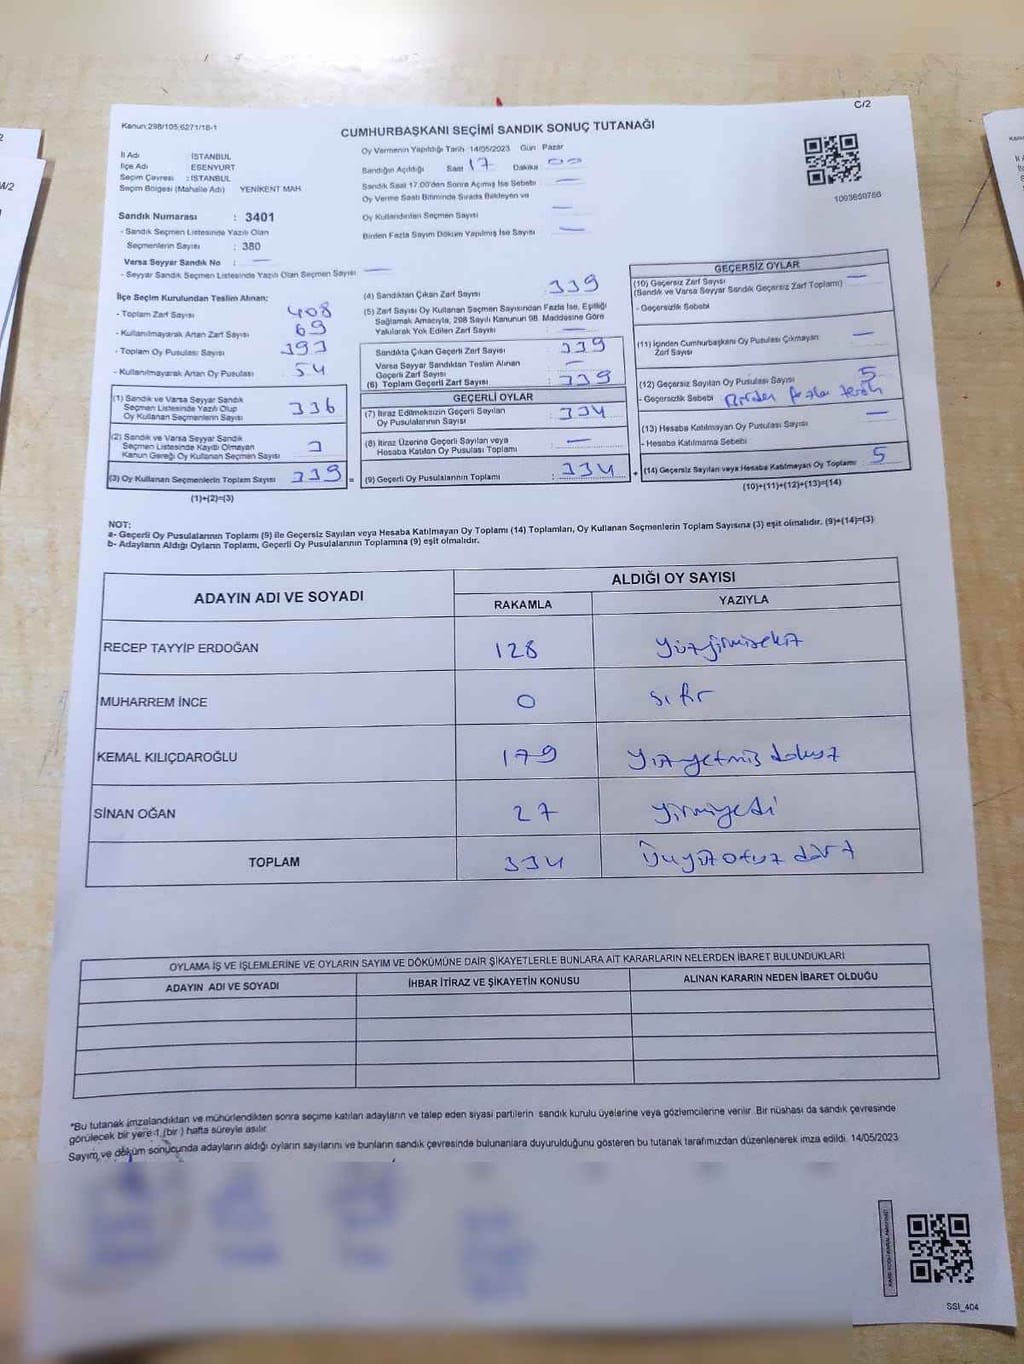 C/2
Kanun:298/105;6271/18-1
CUMHURBAŞKANI SEÇİMİ SANDIK SONUÇ TUTANAĞI
İl Adı : İSTANBUL
İlçe Adı : ESENYURT
Seçim Çevresi : İSTANBUL
Seçim Bölgesi (Mahalle Adı) YENİKENT MAH.
Oy Vermenin Yapıldığı Tarih 14/05/2023 Gün Pazar
Sandığın Açıldığı Saat 17 Dakika 00
Sandık Saat 17.00'den Sonra Açımış İse Sebebi —
Oy Verme Saati Bitiminde Sırada Bekleyen ve
Oy Kullandırılan Seçmen Sayısı —
Birden Fazla Sayım Döküm Yapılmış İse Sayısı —
1093650766
Sandık Numarası : 3401
- Sandık Seçmen Listesinde Yazılı Olan
Seçmenlerin Sayısı : 380
Varsa Seyyar Sandık No : —
- Seyyar Sandık Seçmen Listesinde Yazılı Olan Seçmen Sayısı —
İlçe Seçim Kurulundan Teslim Alınan:
- Toplam Zarf Sayısı 408
- Kullanılmayarak Artan Zarf Sayısı 69
- Toplam Oy Pusulası Sayısı 393
- Kullanılmayarak Artan Oy Pusulası 54
(1) Sandık ve Varsa Seyyar Sandık
Seçmen Listesinde Yazılı Olup
Oy Kullanan Seçmenlerin Sayısı 336
(2) Sandık ve Varsa Seyyar Sandık
Seçmen Listesinde Kaydı Olmayan
Kanun Gereği Oy Kullanan Seçmen Sayısı 3
(3) Oy Kullanan Seçmenlerin Toplam Sayısı 339 =
(1)+(2)=(3)
(4) Sandıktan Çıkan Zarf Sayısı : 339
(5) Zarf Sayısı Oy Kullanan Seçmen Sayısından Fazla İse, Eşitliği
Sağlamak Amacıyla, 298 Sayılı Kanunun 98. Maddesine Göre
Yakılarak Yok Edilen Zarf Sayısı : —
Sandıkta Çıkan Geçerli Zarf Sayısı : 339
Varsa Seyyar Sandıktan Teslim Alınan
Geçerli Zarf Sayısı : —
(6) Toplam Geçerli Zarf Sayısı : 339
GEÇERLİ OYLAR
(7) İtiraz Edilmeksizin Geçerli Sayılan
Oy Pusulalarının Sayısı : 334
(8) İtiraz Üzerine Geçerli Sayılan veya
Hesaba Katılan Oy Pusulası Toplamı : —
(9) Geçerli Oy Pusulalarının Toplamı : 334 +
GEÇERSİZ OYLAR
(10) Geçersiz Zarf Sayısı —
(Sandık ve Varsa Seyyar Sandık Geçersiz Zarf Toplamı)
- Geçersizlik Sebebi
(11) İçinden Cumhurbaşkanı Oy Pusulası Çıkmayan
Zarf Sayısı —
(12) Geçersiz Sayılan Oy Pusulası Sayısı 5
- Geçersizlik Sebebi Birden fazla tercih
(13) Hesaba Katılmayan Oy Pusulası Sayısı —
- Hesaba Katılmama Sebebi
(14) Geçersiz Sayılan veya Hesaba Katılmayan Oy Toplamı 5
(10)+(11)+(12)+(13)=(14)
NOT:
a- Geçerli Oy Pusulalarının Toplamı (9) ile Geçersiz Sayılan veya Hesaba Katılmayan Oy Toplamı (14) Toplamları, Oy Kullanan Seçmenlerin Toplam Sayısına (3) eşit olmalıdır. (9)+(14)=(3)
b- Adayların Aldığı Oyların Toplamı, Geçerli Oy Pusulalarının Toplamına (9) eşit olmalıdır.
ADAYIN ADI VE SOYADI
ALDIĞI OY SAYISI
RAKAMLA YAZIYLA
RECEP TAYYİP ERDOĞAN 128 Yüzyirmisekiz
MUHARREM İNCE 0 sıfır
KEMAL KILIÇDAROĞLU 179 Yüzyetmiş dokuz
SİNAN OĞAN 27 Yirmiyedi
TOPLAM 334 Üçyüzotuz dört
OYLAMA İŞ VE İŞLEMLERİNE VE OYLARIN SAYIM VE DÖKÜMÜNE DAİR ŞİKAYETLERLE BUNLARA AİT KARARLARIN NELERDEN İBARET BULUNDUKLARI
ADAYIN ADI VE SOYADI İHBAR İTİRAZ VE ŞİKAYETİN KONUSU ALINAN KARARIN NEDEN İBARET OLDUĞU
*Bu tutanak imzalandıktan ve mühürlendikten sonra seçime katılan adayların ve talep eden siyasi partilerin sandık kurulu üyelerine veya gözlemcilerine verilir. Bir nüshası da sandık çevresinde
görülecek bir yere 1 (bir ) hafta süreyle asılır.
Sayım ve döküm sonucunda adayların aldığı oyların sayılarını ve bunların sandık çevresinde bulunanlara duyurulduğunu gösteren bu tutanak tarafımızdan düzenlenerek imza edildi. 14/05/2023
SSİ_404